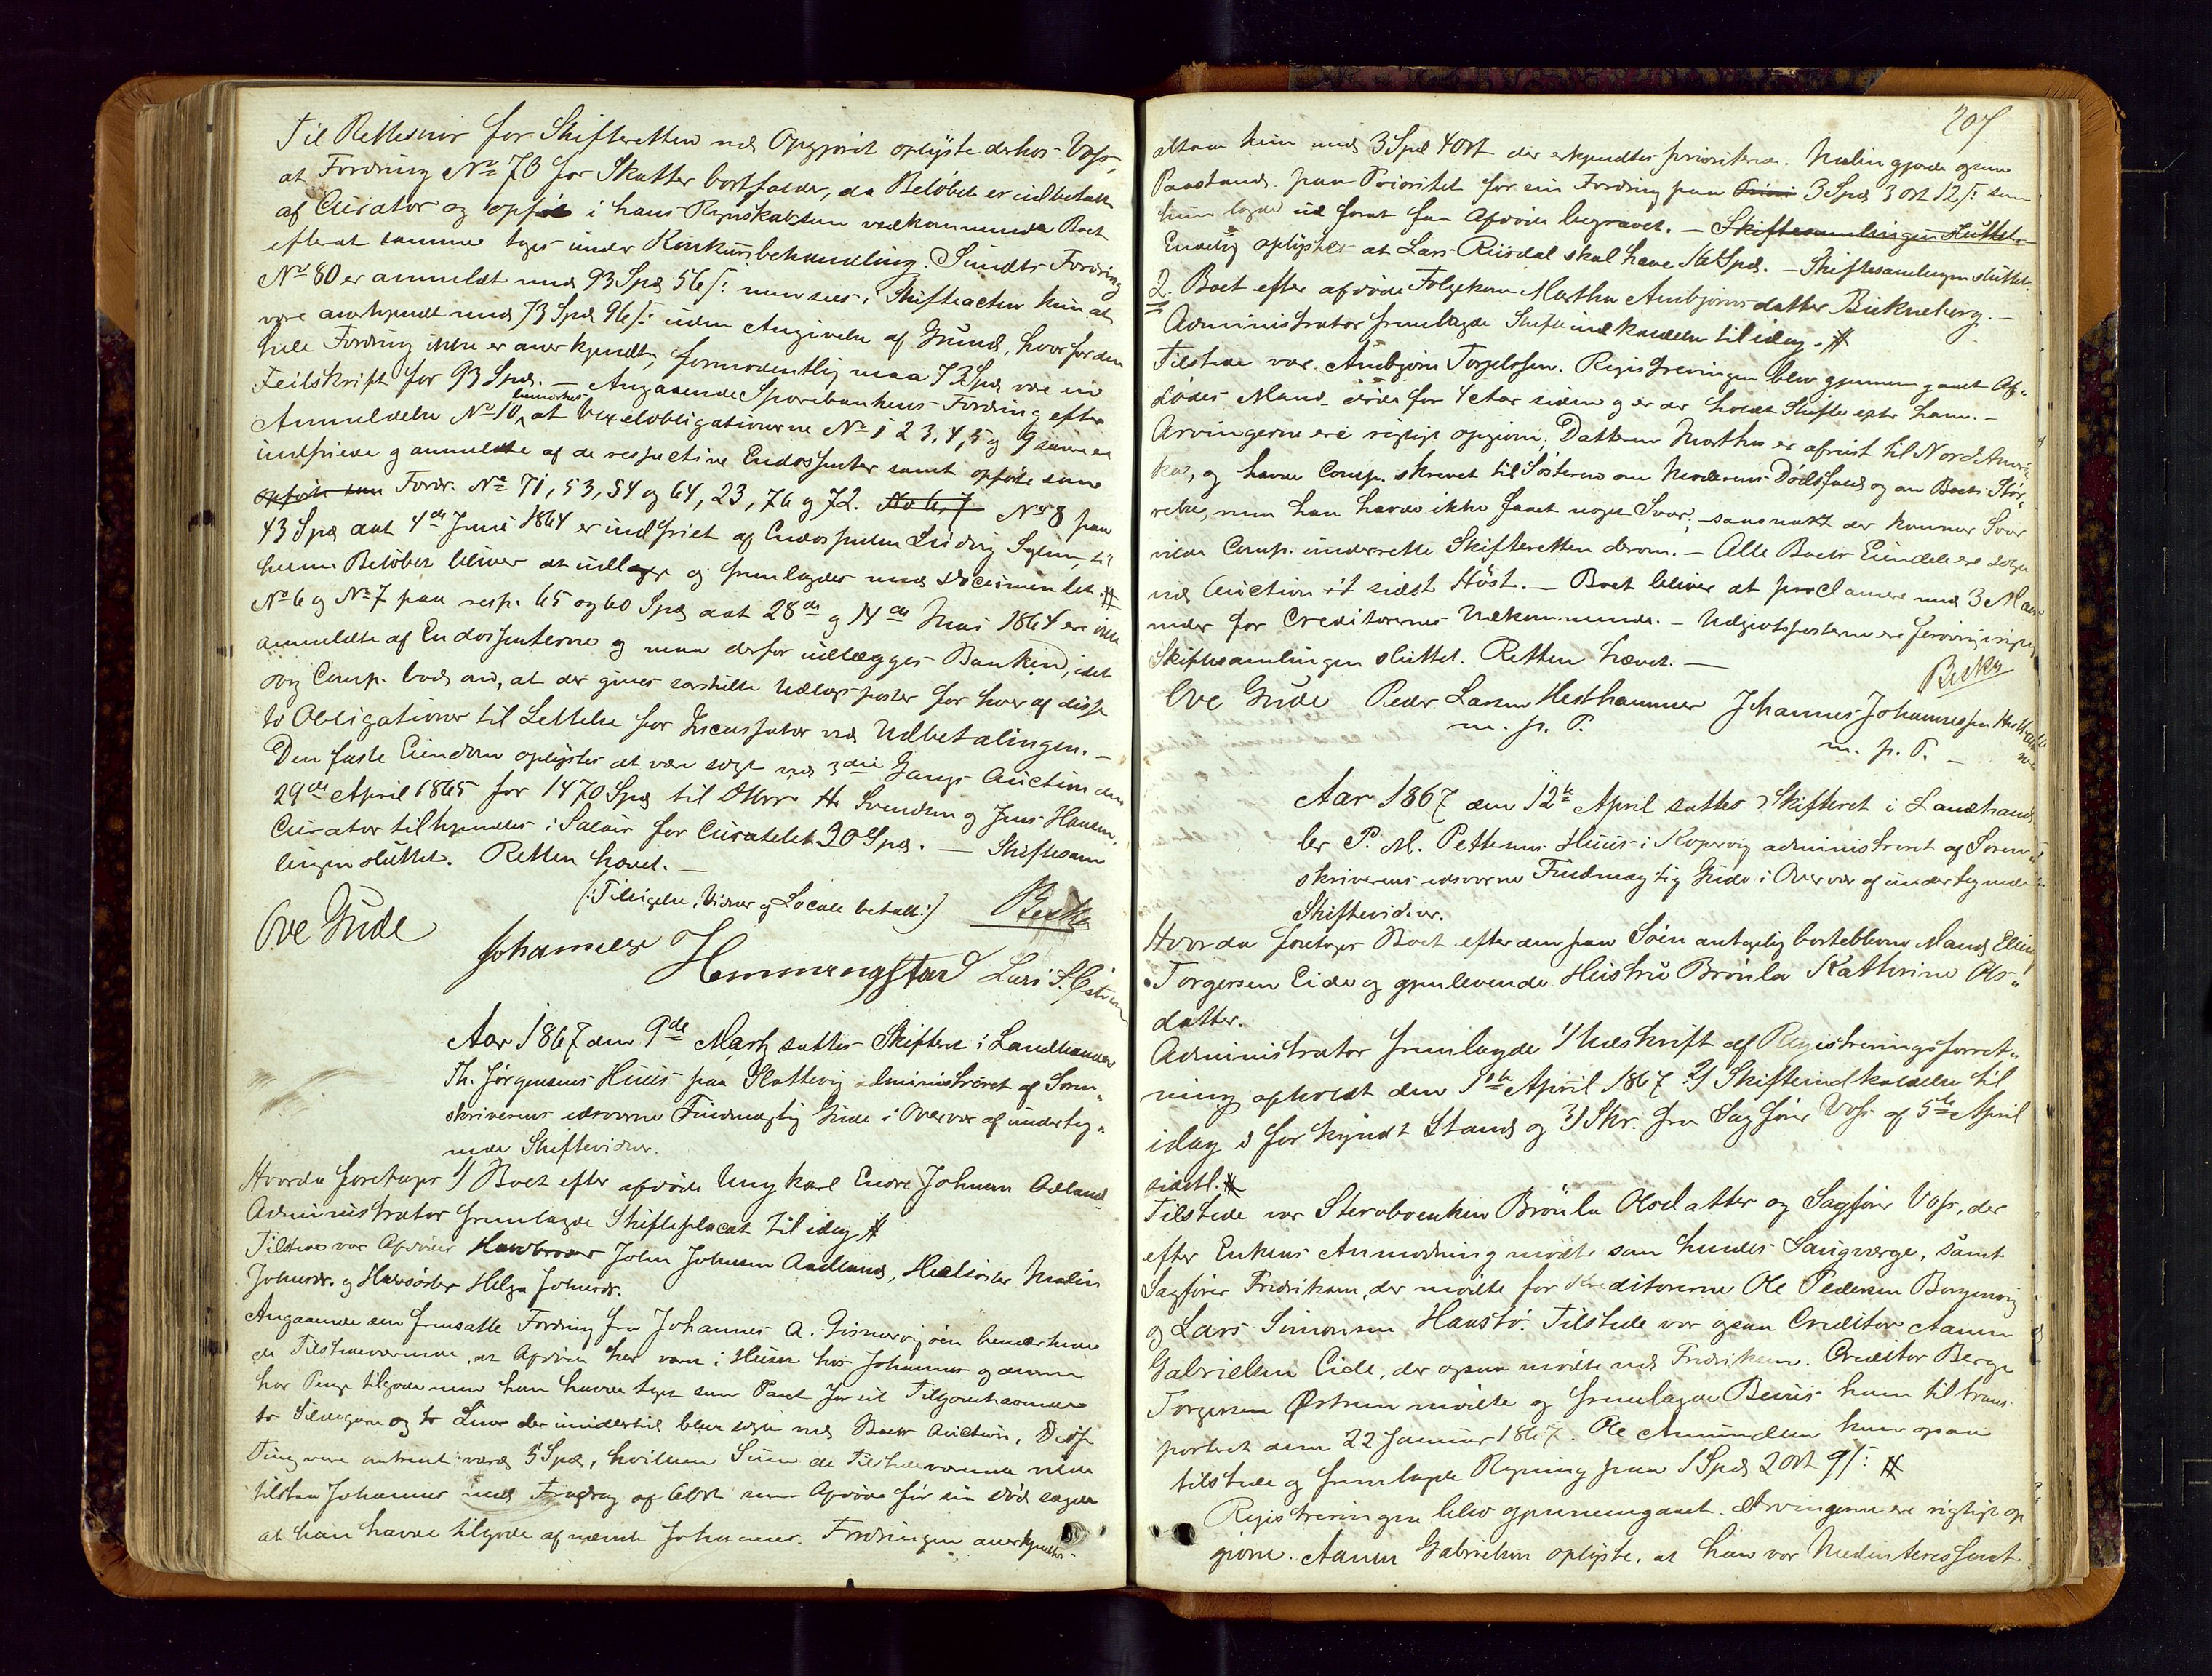 Til Rettesnor for Skifteretten ved Opgjøret oplyste derhos Voss,
at Fordring No 78 for Skatter bortfalder, da Beløbet er indbetalt
af Curator og opført i hans Regnskab som vedkommende Boet
efterat samme toges under Konkursbehandling. Sundts Fordring
No 80 er anmeldt med 93 Spd 56 s: men sees i Skifteacten kun at
være anerkjendt med 73 Spd 96 s: uden Angivelse af Grund, hvorfor den
hele Fordring ikke er anerkjendt, formodentlig maa 73 Spd være en
Feilskrift for 93 Spd. — Angaaende Sparebankens Fordring efter
Anmeldelse No 10, bemærkes at Vexelobligationerne No 1 2 3, 4, 5 og 9 senere ere
indfriede og anmeldte af de respective Endossenter samt opførte som
opførte som Fordr. No 71, 53, 54 og 64, 23, 76 og 72. No 6, 7 No 8 paa
43 Spd dat 4de Juni 1864 er indfriet af Endossenten Ludvig til
hvem Beløbet bliver at udlægge og fremlagdes med Documentet. #
No 6 og No 7 paa resp. 65 og 60 Spd dat 28de og 14de Mai 1864 ere ikke
anmeldte af Endossenterne og maa derfor udlægges Banken, idet
Comp. bad om, at der gives særskilte Udlægsposter for hver af disse
to Obligationer til Lettelse for Incassator ved Udbetalingen. —
Den faste Eiendom oplystes at være solgt ved 3die Gangs Auction den
29de April 1865 for 1470 Spd til DHrr H. Svendsen og Jens Hansen.
Curator tilkjendes i Salair for Curatelet 30 Spd. — Skiftesam
lingen sluttet. Retten hævet. —
(: Tilsigelse, Vidner og Locale betalt:) Beskr
Ove Gude
Johannes Hemmingstad Lars S.
Aar 1867 den 9de Marts sattes Skifteret i Landhandler
Th. Jørgensens Huus paa Slottevig administreret af Soren„
skriverens edsvorne Fuldmægtig Gude i Overvær af underteg„
nede Skiftevidner.
Hvorda foretoges 1/ Boet efter afdøde Ungkarl Endre Johnsen Adland
Administrator fremlagde Skifteplacat til idag #
Tilstede var Afdødes Halvbroder John Johnsen Aadland, Helsøster Malin
Johnsdr. og Halvsøster Helga Johnsdr.
Angaaende den fremsatte Fordring fra Johannes A. Gismervigøen bemærkede
de Tilstedeværende, at Afdøde har været i Huset hos Johannes og denne
har Penge tilgode men han havde taget som Pant for sit Tilgodehavende
to Sildegarn og to der imidlertid blev solgte ved Boets Auction. Disse
Ting vare omtrent værd 5 Spd, hvilken Sum de Tilstedeværende vilde
tilstaa Johannes med Fradrag af 6 Ort som Afdøde før sin Død sagde
at han havde tilgode af nævnte Johannes. Fordringen anerkjendtes
207
altsaa kun med 3 Spd 4 Ort der erkjendtes prioriteret. Malin gjorde ogsaa
Paastand paa Prioritet for sin Fordring paa 3 Spd 3 Ort 12 s: som
hun lagde ud forat faa Afdøde begravet. — Skiftesamlingen sluttet.
Endelig oplystes at Lars Riisdal skal have 16 Spd. — Skiftesamlingen sluttet.
2. Boet efter afdøde Følgekone Martha Anbjørnsdatter Birkneberg. —
Administrator fremlagde Skifteindkaldelse til idag. #
Tilstede var Anbjørn Torgelssen. Registreringen blev gjennemgaaet Af„
dødes Mand døde for 4 Aar siden og er der holdt Skifte efter ham. —
Arvingerne ere rigtigt opgivne. Datteren Martha er afreist til Nord Ameri
ka, og havde Comp. skrevet til Søsteren om Moderens Dødsfald og om Boets Stør„
relse, men han havde ikke faaet noget Svar; saasnart der kommer Svar
vilde Comp. underrette Skifteretten derom. — Alle Boets Eiendele ere solgte
ved Auction sidst Høst. — Boet bliver at proclamere med 3 Maa
neder for Creditorernes Vedkommende. — Udgivtsposterne ere forøvrigt rigtige
Skiftesamlingen sluttet. Retten hævet. —
Beskr
Ove Gude Peder Larsen Hesthammer Johannes Johannessen
m. p. P. m. p. P. —
Aar 1867 den 12te April sattes Skifteret i Landhand
ler P. M. Pettersens Huus i Kopervig administreret af Soren„
skriverens edsvorne Fuldmægtig Gude i Overvær af undertegnede
Skiftevidner.
Hvorda foretoges Boet efter den paa Søen antagelig bortblevne Mand Elling
Torgersen Eide og gjenlevende Hustru Brønla Kathrine Ols„
datter.
Administrator fremlagde 1/ Udskrift af Registreringsforret„
ning afholdt den 1ste April 1867 2/ Skifteindkaldelse til
idag i forkyndt Stand og 3/ Skr. fra Sagfører Voss af 5te April
sidstl. #
Tilstede var Stervboenken Brønla Olsdatter og Sagfører Voss, der
efter Enkens Anmodning mødte som hendes Laugværge, samt
Sagfører Fredriksen, der mødte for Creditorerne Ole Pedersen Borgenvig
og Lars Simonsen Haustø. Tilstede var ogsaa Creditor Aanen
Gabrielsen Eide, der ogsaa mødte ved Fredriksen. Creditor Berge
Torgersen Østrem mødte og fremlagde Beviis ham til trans„
porteret den 22 Januar 1867. Ole Amundsen kom ogsaa
tilstede og fremlagde Regning paa 1 Spd 2 Ort 9 s: #
Registreringen blev gjennemgaaet. Arvingerne ere rigtigt op
givne. Aanen Gabrielsen oplyste, at han var Medinteressent